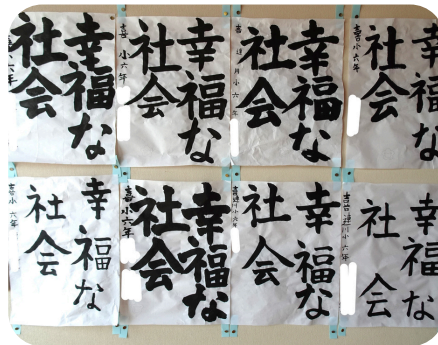 幸福な
社会
小六年
幸福な
社会
喜 小六年
幸福な
社会
幸福な
社会
喜小六年
幸福な
社会
喜小 六年
幸福な
社会
喜小六年
幸福な
社会
喜連川小六年
幸福な
社会
連川小六年